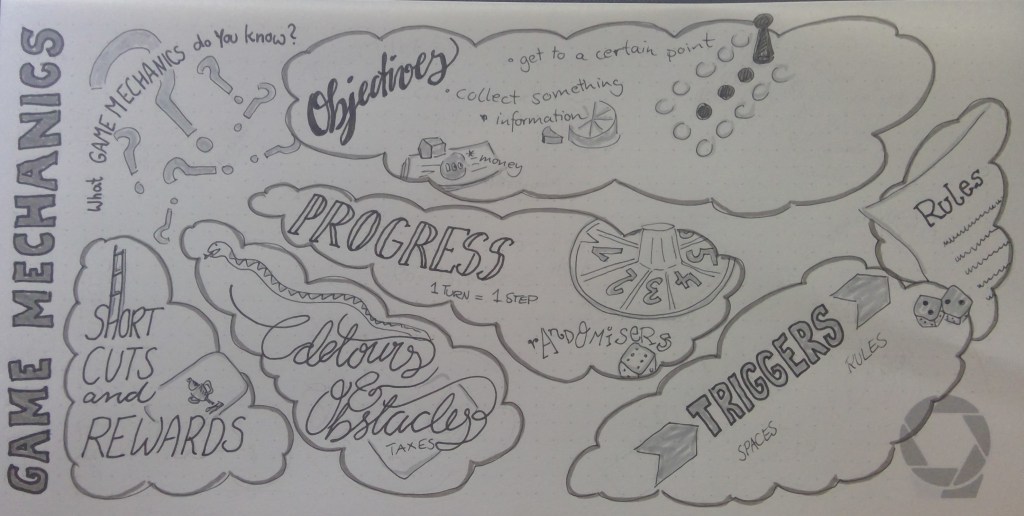 GAME MECHANICS
What GAME MECHANICS do You know?
Objectives
• get to a certain point
• collect something
* information
* money
PROGRESS
1 TURN = 1 STEP
RANDOMISERS
1 2 2 3 4 5
Rules
SHORT
CUTS
and
REWARDS
detours
Obstacles
TAXES
TRIGGERS
SPACES
RULES